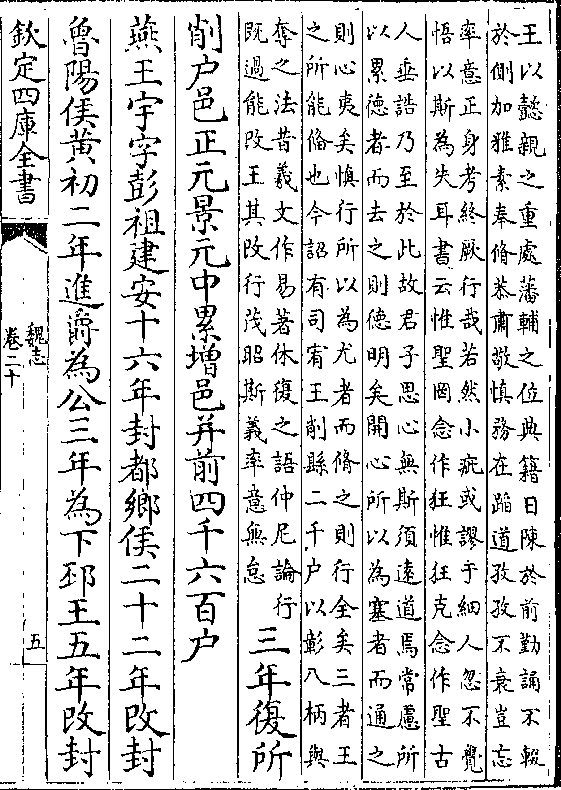 王以懿親之重處藩輔之位典籍日陳於前勤誦不輟
於側加雅素奉脩恭肅敬慎務在蹈道孜孜不衰豈忘
率意正身考終厥行哉若然小疵或謬于細人忽不覺
悟以斯為失耳書云惟聖罔念作狂惟狂克念作聖古
人垂誥乃至於此故君子思心無斯須遠道焉常慮所
以累德者而去之則德明矣開心所以為塞者而通之
則心夷矣慎行所以為尤者而脩之則行全矣三者王
之所能俻也今詔有司宥王削縣二千户以彰八柄與
奪之法昔羲文作易著休復之語仲尼論行
既過能改王其改行茂昭斯義率意無怠
三年復所
削户邑正元景元中累增邑并前四千六百户
燕王宇字彭祖建安十六年封都鄉侯二十二年改封
魯陽侯黄初二年進爵為公三年為下邳王五年改封
欽定四庫全書
魏志
卷二十
五